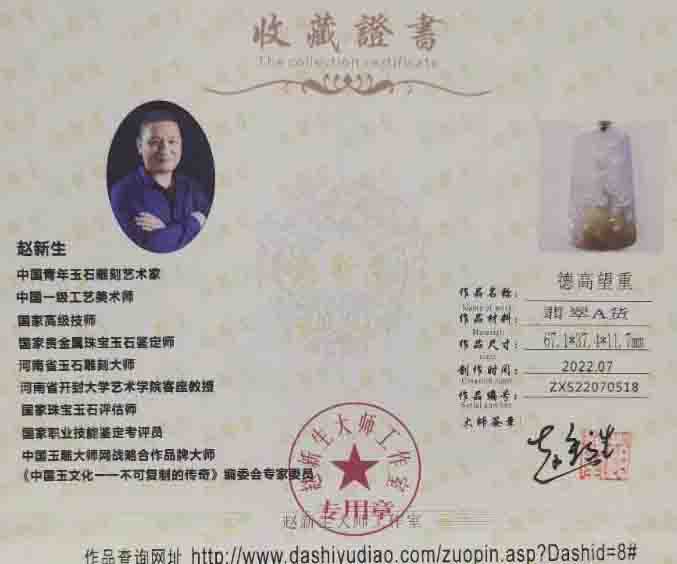 收藏證書
The collection certificate
赵新生
中国青年玉石雕刻艺术家
中国一级工艺美术师
国家高级技师
国家贵金属珠宝玉石鉴定师
河南省玉石雕刻大师
河南省开封大学艺术学院客座教授
国家珠宝玉石评估师
国家职业技能鉴定考评员
中国玉雕大师网战略合作品牌大师
《中国玉文化——不可复制的传奇》编委会专家委员
作品名称： 德高望重
Name of work
作品材料： 翡翠A货
Materials
作品尺寸： 67.1*37.4*11.7mm
创作时间： 2022.07
Creation time
作品编号： ZXS22070518
大师签章：
赵新生大师工作室
专用章
赵新生大师工作室
作品查询网址 http://www.dashiyudiao.com/zuopin.asp?Dashid=8#